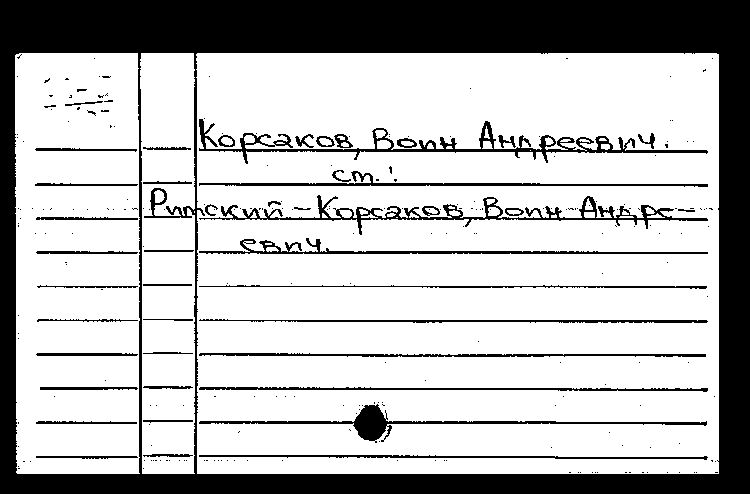 Корсаков, Воин Андреевич.
ст.:
Римский-Корсаков, Воин Андре-
евич.